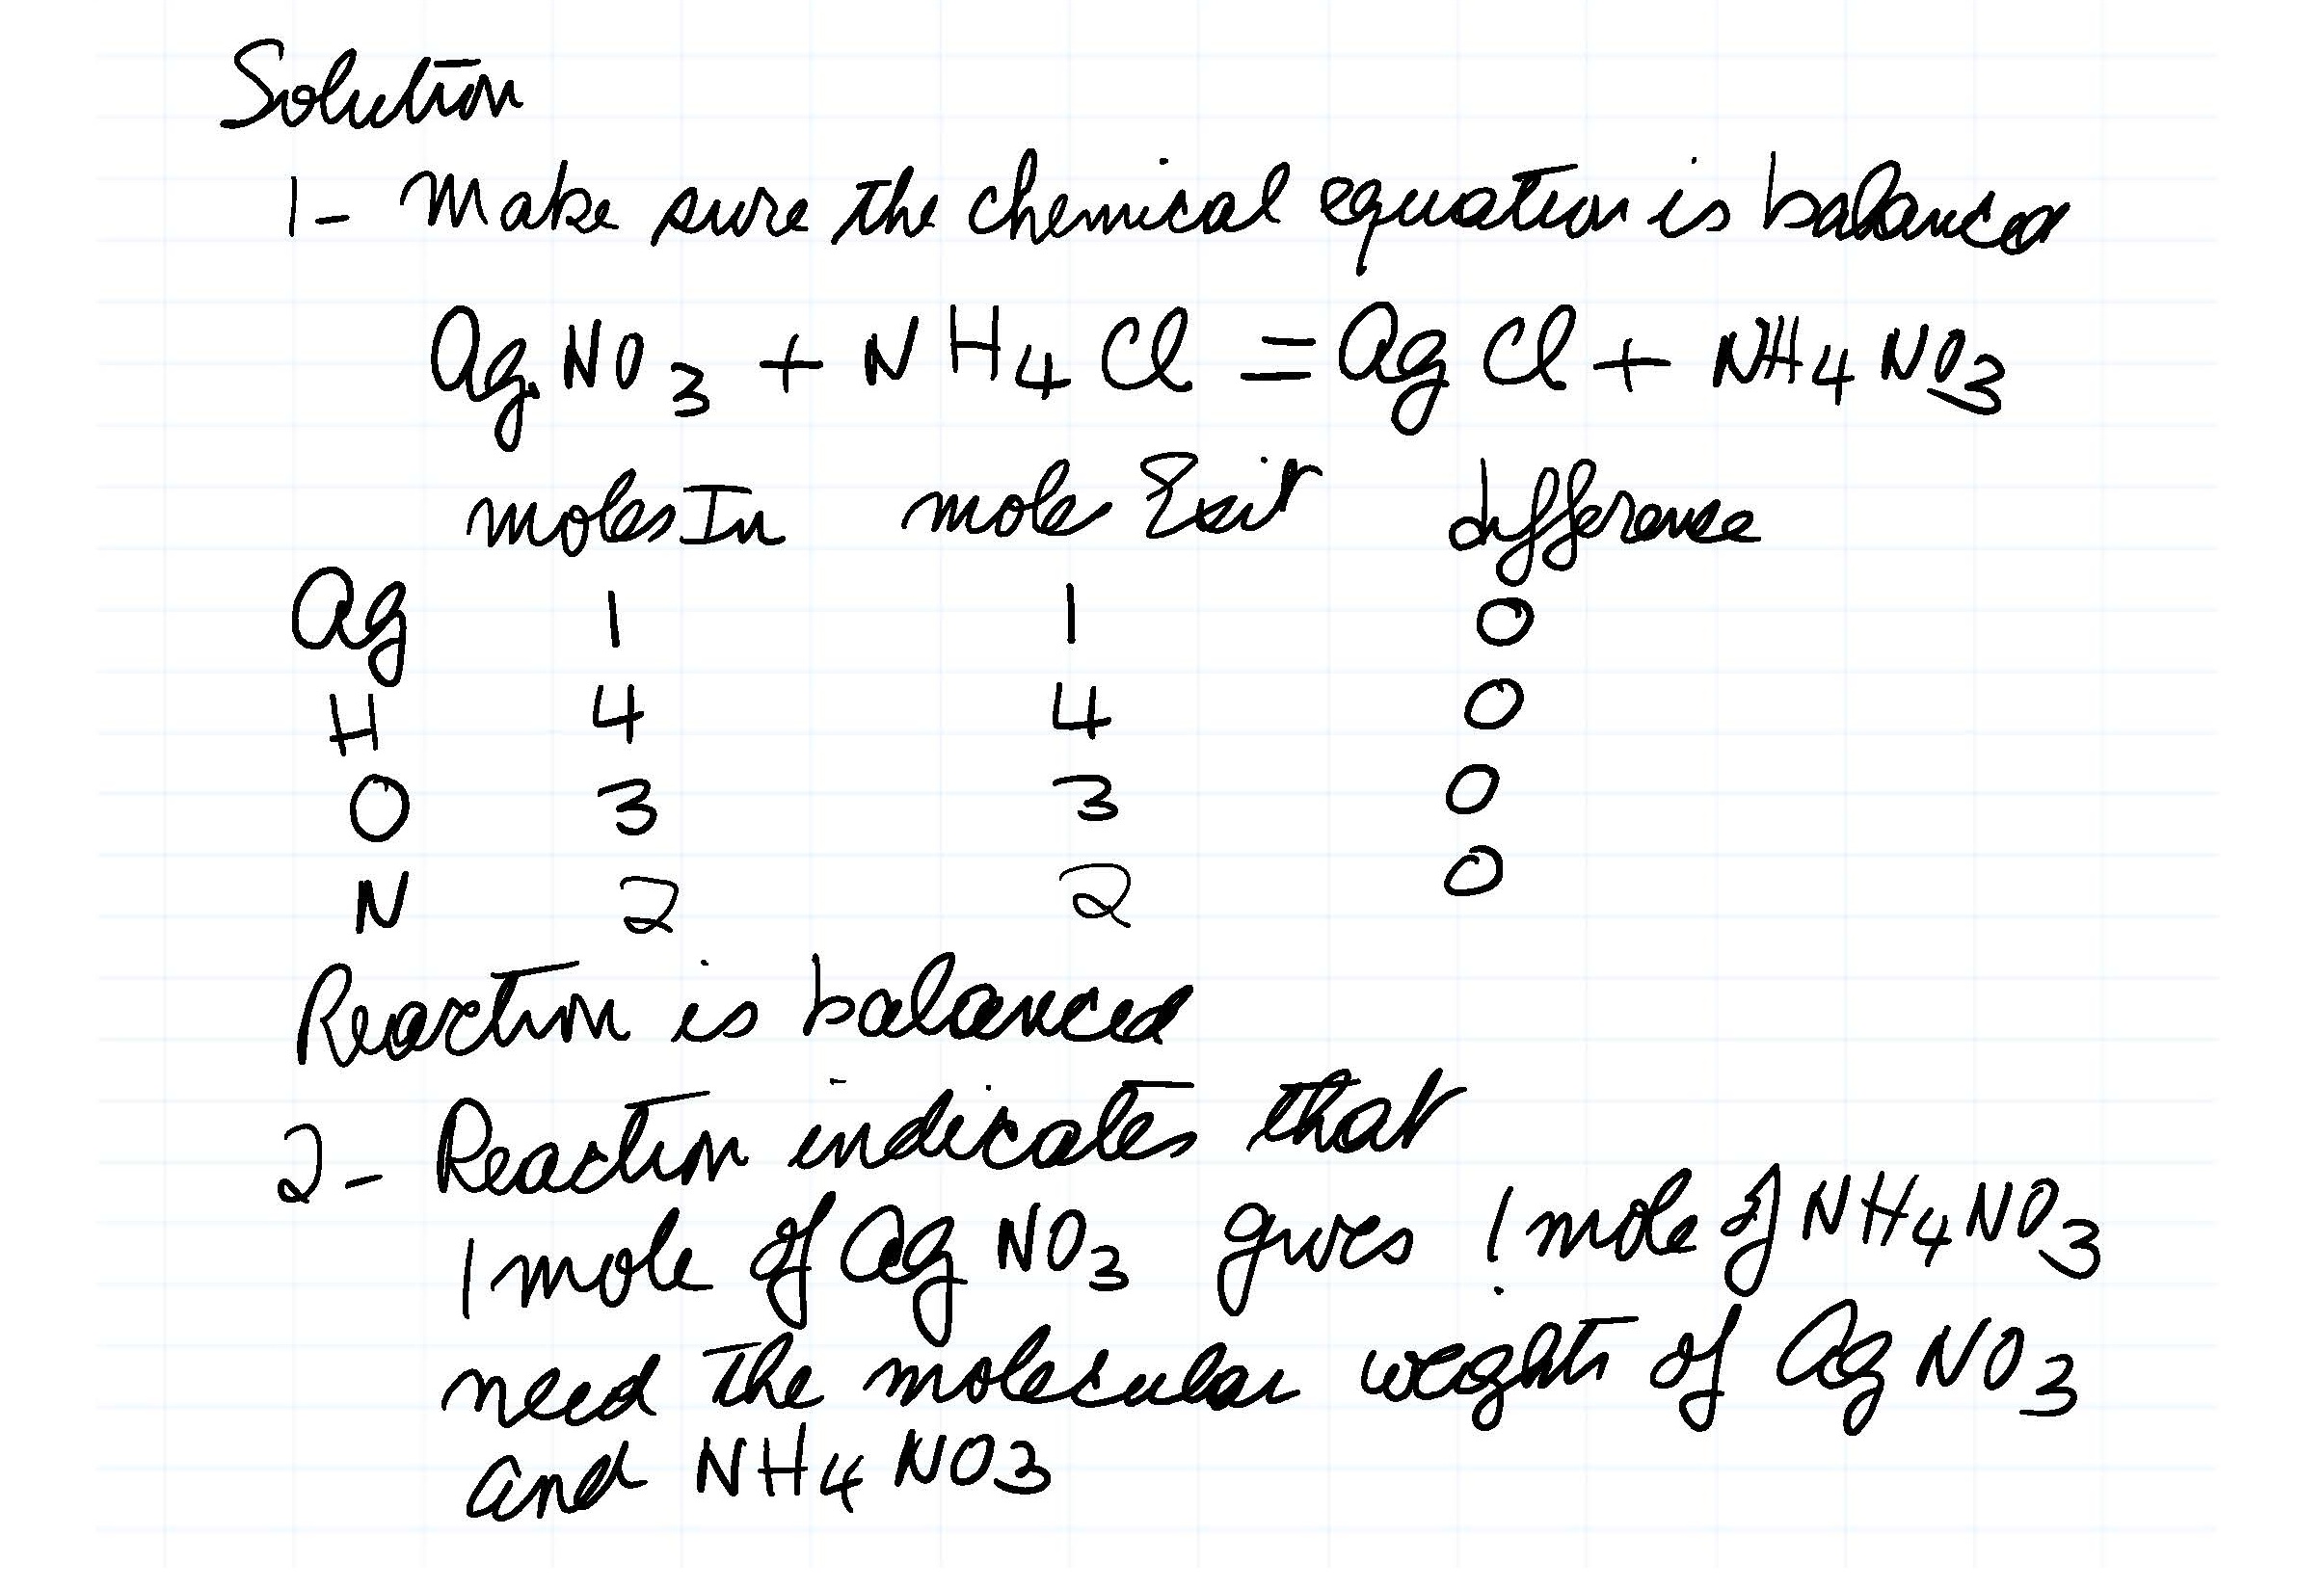 Solution
1- Make sure the chemical equation is balanced
AgNO3 + NH4Cl = AgCl + NH4NO3
moles In mole Exit difference
Ag 1 1 0
H 4 4 0
O 3 3 0
N 2 2 0
Reaction is balanced
2- Reaction indicates that
1 mole of AgNO3 gives 1 mole of NH4NO3
need the molecular weights of AgNO3
and NH4NO3